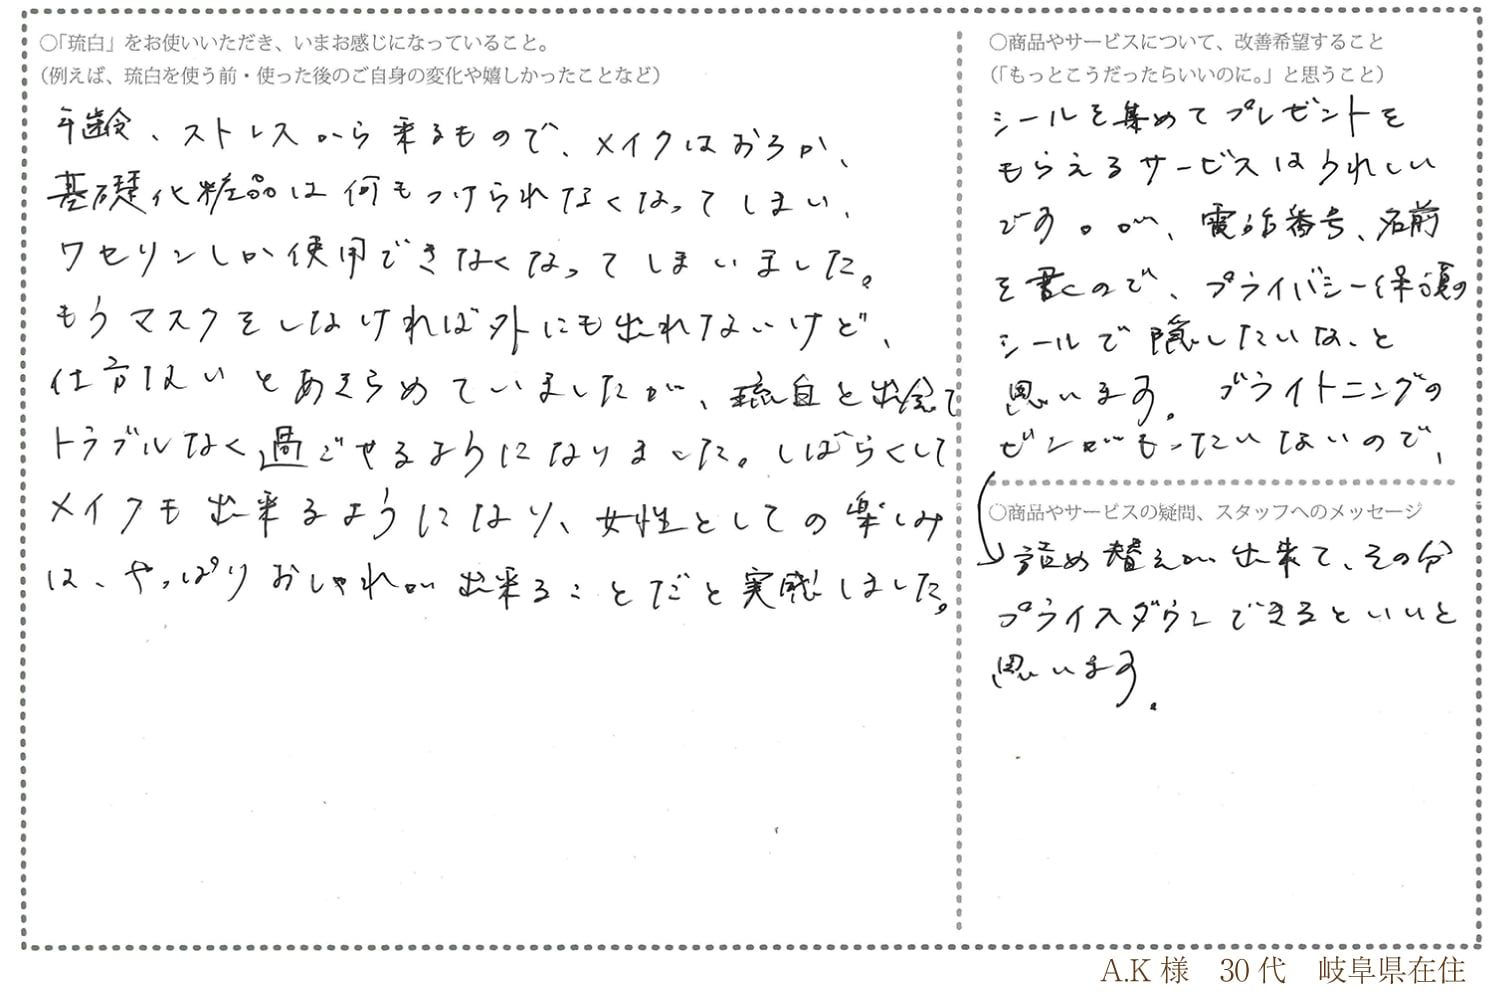 ○「琉白」をお使いいただき、いまお感じになっていること。
（例えば、琉白を使う前・使った後のご自身の変化や嬉しかったことなど）
年齢、ストレスから来るもので、メイクはおろか、
基礎化粧品は何もつけられなくなってしまい、
ワセリンしか使用できなくなってしまいました。
もうマスクをしなければ外にも出れないけど、
仕方ないとあきらめていましたが、琉白と出会て
トラブルなく過ごせるようになりました。しばらくして
メイクも出来るようになり、女性としての楽しみ
は、やっぱりおしゃれが出来ることだと実感しました。
○商品やサービスについて、改善希望すること
（「もっとこうだったらいいのに。」と思うこと）
シールを集めてプレゼントを
もらえるサービスはうれしい
です。が、電話番号、名前
を書くので、プライバシー保護の
シールで隠したいな、と
思います。ブライトニングの
ビンがもったいないので、
○商品やサービスの疑問、スタッフへのメッセージ
詰め替えが出来て、その分
プライスダウンできるといいと
思います。
A.K 様　30 代　岐阜県在住